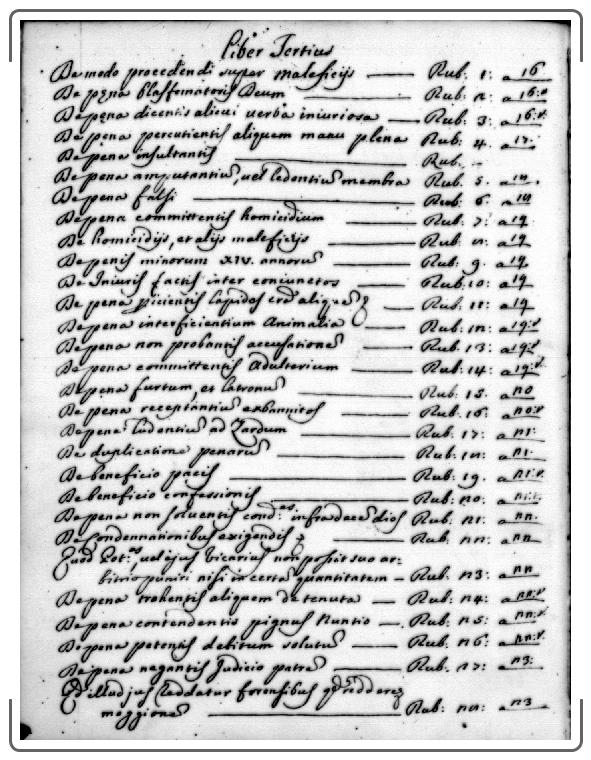 Liber Tertius
De modo procedendi super maleficijs — Rub. 1: a 16
De pena blasfematoris Deum — Rub. 2: a 16:v
De pena dicentis alicui verba iniuriosa — Rub. 3: a 16:v.
De pena percutientis aliquem manu plena Rub. 4. a 17.
De pena insultantis — Rub. —
De pena amputantiu, vel ledentiu membra Rub. 5. a 18.
De pena falsi — Rub. 6. a 18
De pena committentis homicidium — Rub. 7: a 19
De homicidijs, et alijs maleficijs — Rub. 8: a 19
De penis minorum XIV. annoru — Rub: 9. a 19
De Iniurijs factis inter coniunctos — Rub. 10: a 19
De pena lapides alique — Rub: 11: a 19
De pena interficientium Animalia — Rub: 12: a 19:v
De pena non probantis accusatione — Rub: 13: a 19:v
De pena committentis Adulterium — Rub: 14: a 19:v.
De pena furtum, et latronu — Rub: 15. a 20
De pena receptantiu exbannitos — Rub: 16. a 20:v.
De pena ludentiu ad Zardum — Rub: 17: a 21:
De duplicatione penaru — Rub: 18: a 21.
De beneficio pacis — Rub: 19. a 21:v.
De beneficio confessionis — Rub: 20. a 21:v.
De pena non solventis cond:es infra decē dies Rub: 21: a 22.
De Condennationibus exigendis — Rub: 22: a 22
Quod Pot:as, vel ejus Vicarius non possit suo ar-
bitrio puniri nisi in certa quantitatem — Rub: 23: a 22
De pena trahentis aliquem de tenuta — Rub: 24: a 22:v.
De pena contendentis pignus Nuntio — Rub: 25: a 22:v.
De pena petentis debitum solutu — Rub: 26: a 22:v.
De pena negantis Judicio patre — Rub: 27: a 23:
Qd illud jus reddatur forensibus
moggione — Rub: 28: a 23